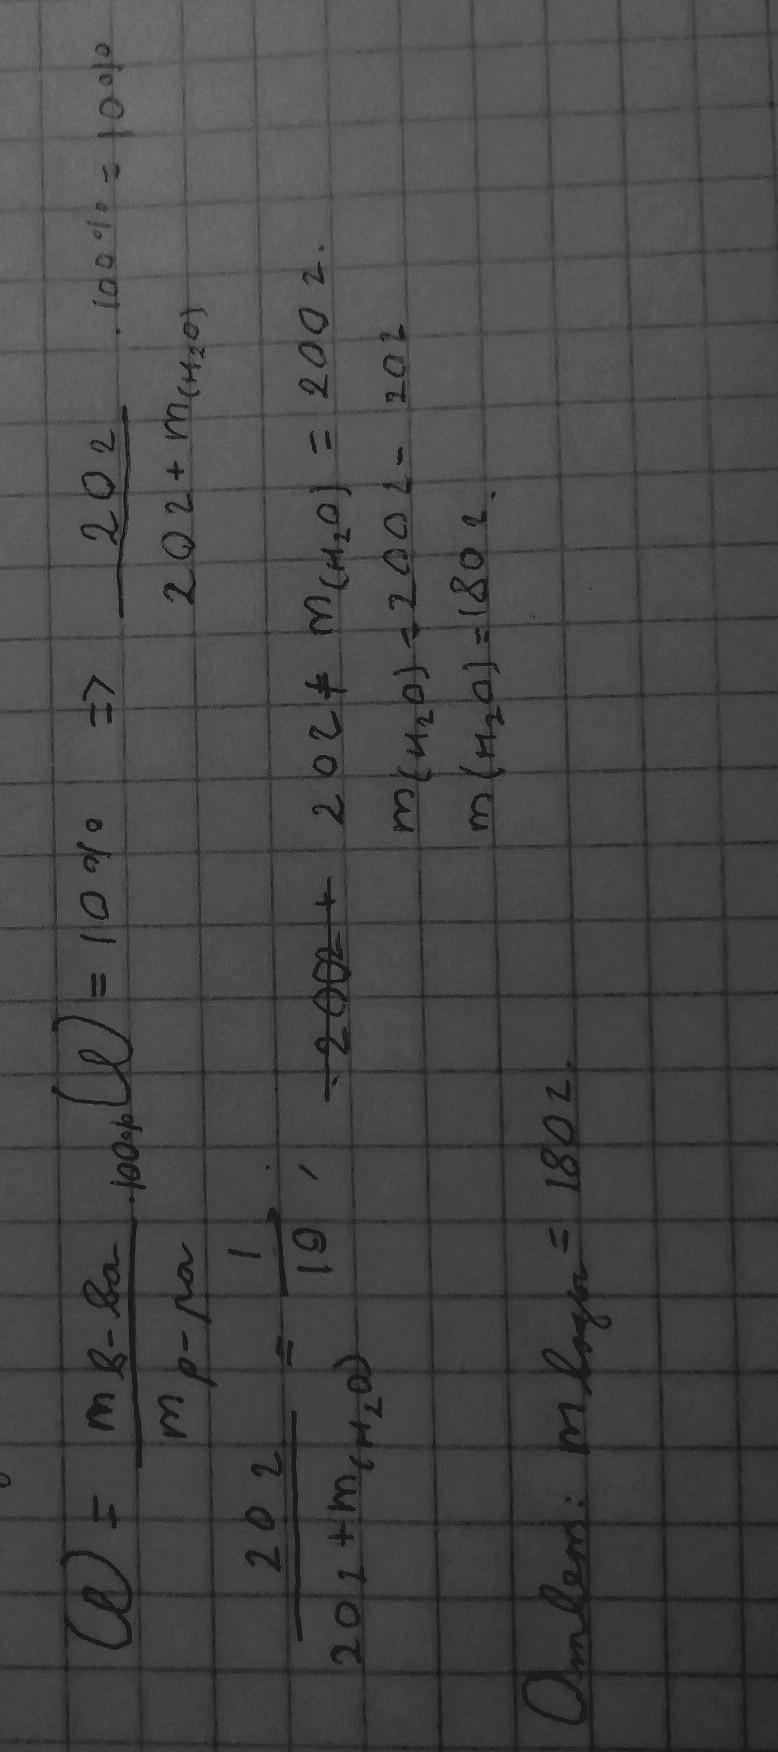 ω = m в-ва / m р-ра · 100% ω = 10% => 20 г / 20 г + m(H₂O) · 100% = 10%
20 г / 20 г + m(H₂O) = 1 / 10, 20 г + m(H₂O) = 200 г.
m(H₂O) = 200 г - 20 г
m(H₂O) = 180 г.
Ответ: m воды = 180 г.